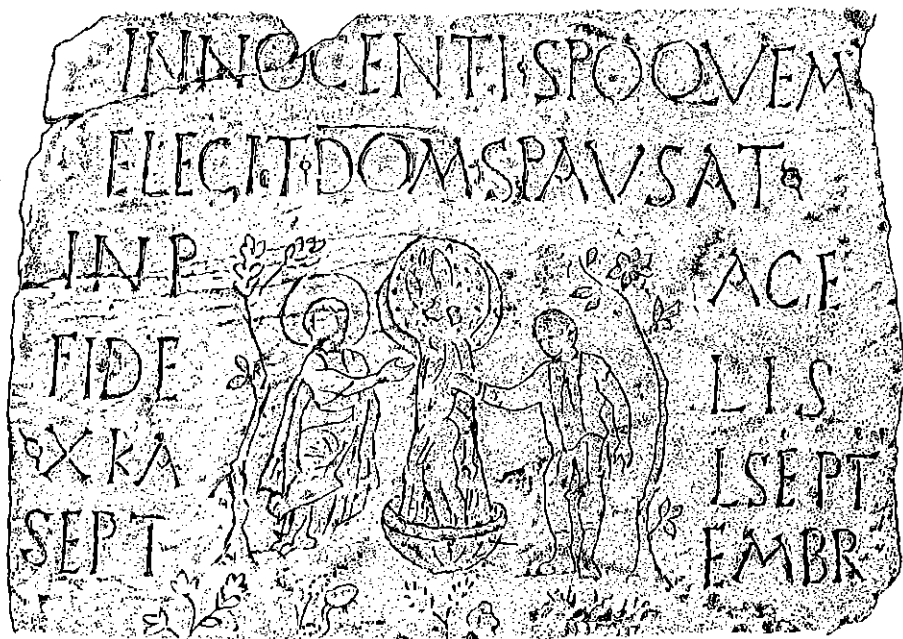 INNOCENTI·SPOQVEM
ELEGIT·DOM·SPAVSAT
INP ACE
FIDE LIS
XKA LSEPT
SEPT EMBR